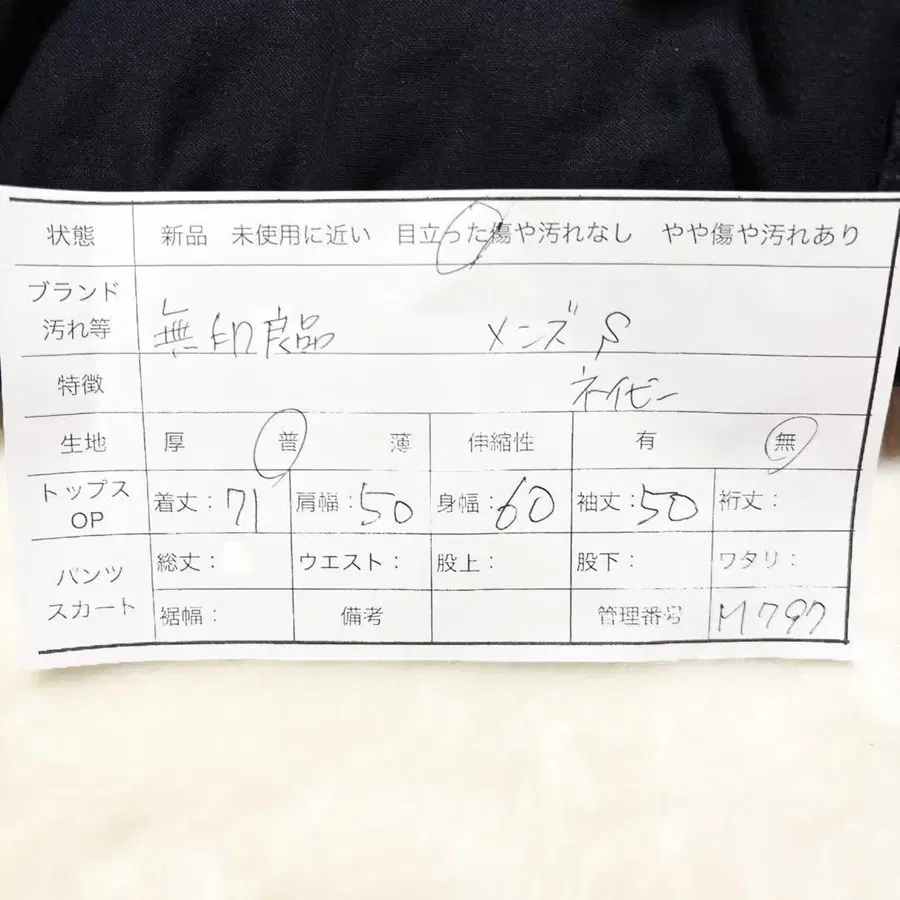 状態 新品 未使用に近い 目立った傷や汚れなし やや傷や汚れあり
ブランド
汚れ等 無印良品 メンズ S
特徴 ネイビー
生地 厚 普 薄 伸縮性 有 無
トップス
OP 着丈:71 肩幅:50 身幅:60 袖丈:50 裄丈:
パンツ
スカート 総丈: ウエスト: 股上: 股下: ワタリ:
裾幅: 備考 管理番号 M797